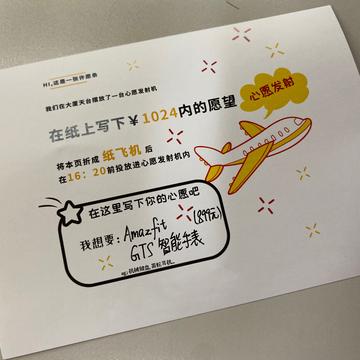 Hi,这是一张许愿券
我们在大厦天台摆放了一台心愿发射机
在纸上写下¥1024内的愿望
心愿发射
将本页折成 纸飞机 后
在16:20前投放进心愿发射机内
在这里写下你的心愿吧
我想要: Amazfit (899元)
GTS 智能手表
eg: 机械键盘、蓝牙耳机...